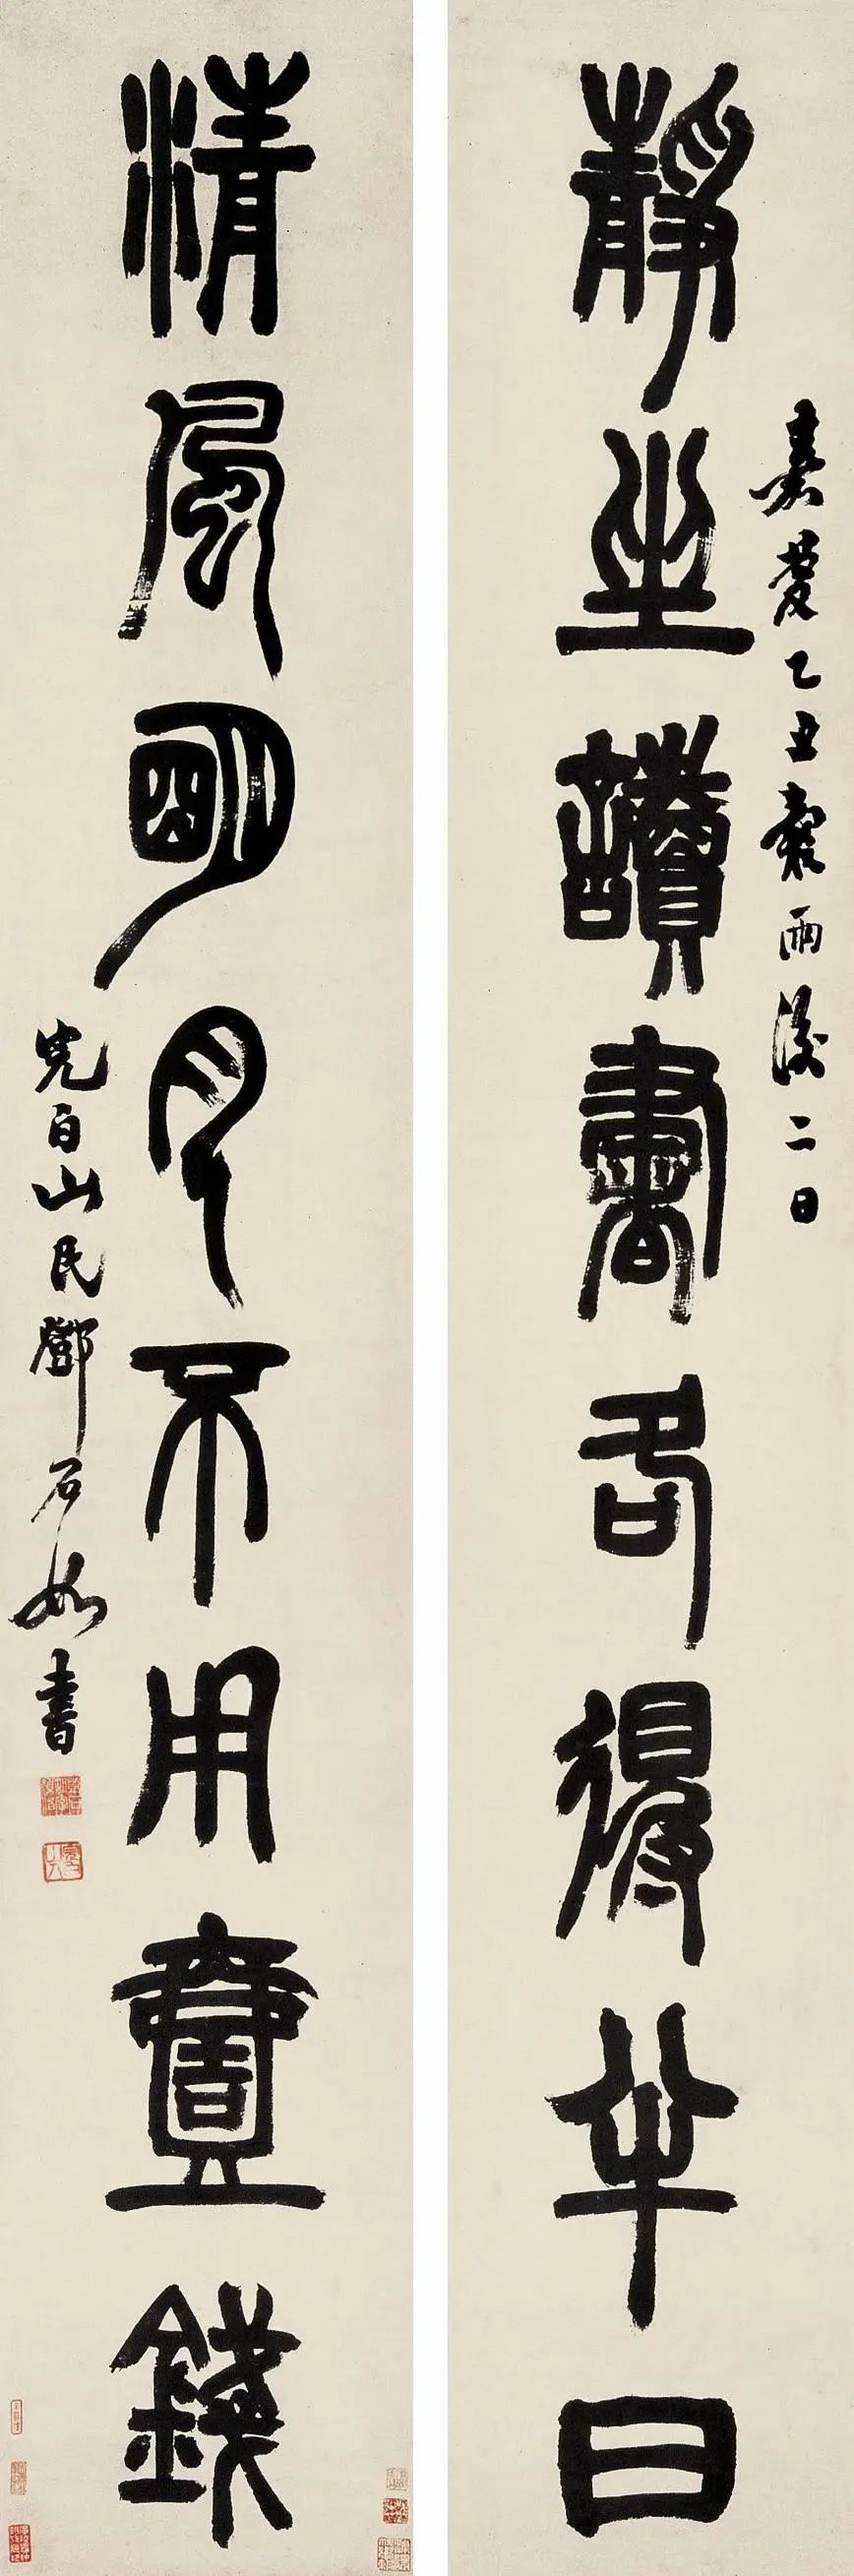 嘉慶乙丑穀雨後二日
靜坐讀書各得半日
清風朙月不用壹錢
完白山民鄧石如書